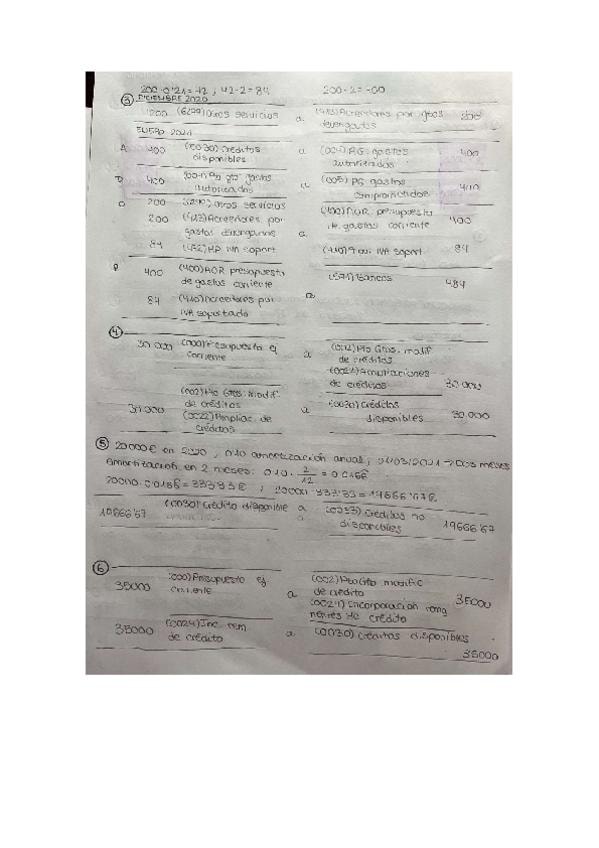 200·0'21= 42 ; 42·2= 84 200·2= 400
③ DICIEMBRE 2020
200 (629) Otros servicios a (413) Acreedores por gtos devengados 200
ENERO 2021
A 400 (0030) Créditos disponibles a (004) PG: gastos autorizados 400
D 400 gto gastos autorizados a (005) PG gastos comprometidos 400
O 200 (629) otros servicios
200 (413) Acreedores por gastos devengados a (400) AOR presupuesto de gastos corriente 400
84 (472) HP IVA soport (410) IVA soport 84
P 400 (400) AOR presupuesto de gastos corriente (571) Bancos 484
84 (410) Acreedores por IVA soportado a
④
30 000 (000) Presupuesto ej corriente a (002) Pto Gtos. modif de créditos
de créditos 30.000
(002) Pto Gtos. modif de créditos
30.000 (0022) Ampliac. de créditos a (0030) Créditos disponibles 30.000
⑤ 20000€ en 2020 , 0'10 amortización anual,
Amortización en 2 meses: 0'10 · 2/12 = 0'0166
20000 · 0'0166 = 333'33€ ; 20000 - 333'33 = 19666'67€.
19666'67 (0030) Crédito disponible a Créditos no disponibles 19666'67
⑥
35000 (000) Presupuesto ej corriente a (002) Pto Gto modific de crédito
(0024) Incorporación crédito 35000
35000 (0024) Inc. rem de crédito a (0030) créditos disponibles
35000